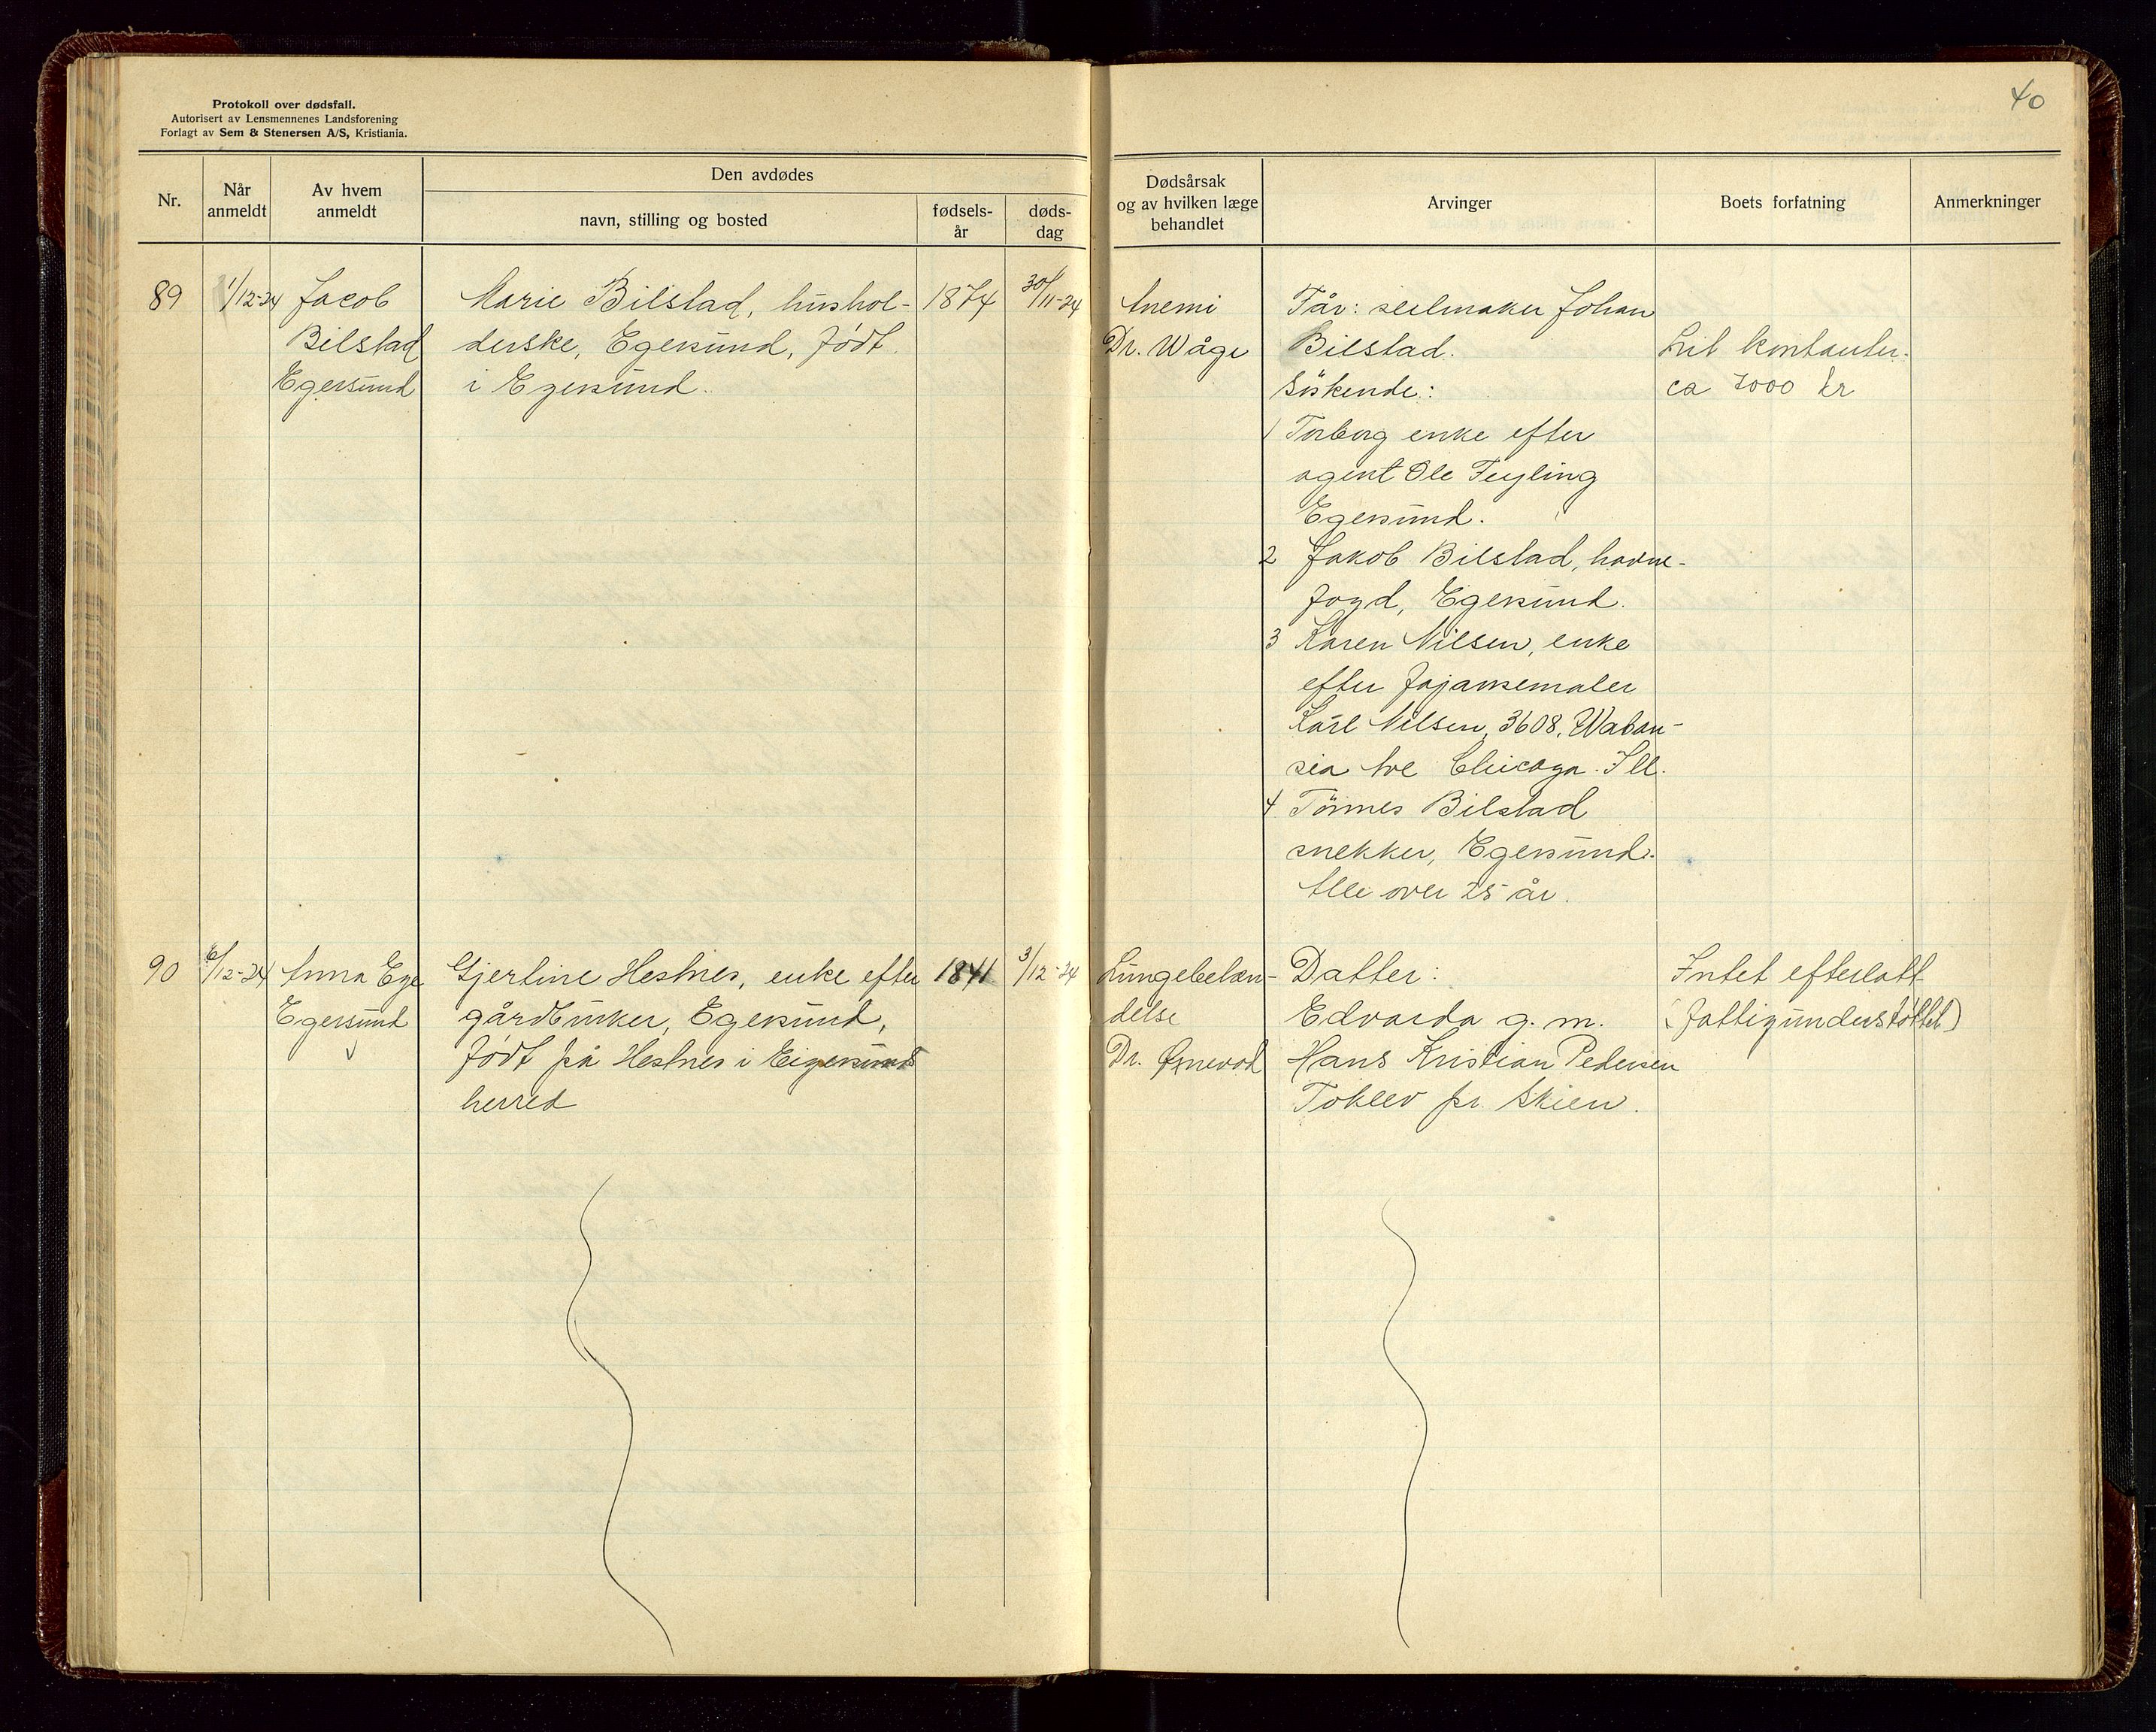 Protokoll over dødsfall.
Autorisert av Lensmennenes Landsforening
Forlagt av Sem & Stenersen A/S, Kristiania.
40
Nr.
Når anmeldt
Av hvem anmeldt
Den avdødes
navn, stilling og bosted
fødsels-år
døds-dag
Dødsårsak
og av hvilken læge
behandlet
Arvinger
Boets forfatning
Anmerkninger
89
1/12-24
Jacob
Bilstad
Egersund
Marie Bilstad, hushol-
derske, Egersund, født
i Egersund.
1874
30/11-24
Anemi
Dr. Wåge
Får: seilmaker Johan
Bilstad.
Søskende:
1 Torborg enke efter
agent Ole Feyling
Egersund.
2 Jakob Bilstad, havne-
fogd, Egersund.
3 Karen Nilsen, enke
efter fajansemaler
Karl Nilsen, 3608, Waban-
sia Ave Chicago. Ill.
4 Tönnes Bilstad
snekker, Egersund.
Alle over 25 år.
Lit kontanter.
ca 7000 kr
90
6/12-24
Anna Ege
Egersund
Gjertine Hestnes, enke efter
gårdbruker, Egersund,
født på Hestnes i Eigersund
herred
1841
3/12-24
Lungebetæn-
delse
Dr.
Datter:
Edvarda g. m.
Hans Kristian Pedersen
pr. Skien.
Intet efterlatt
(fattigunderstøttet)